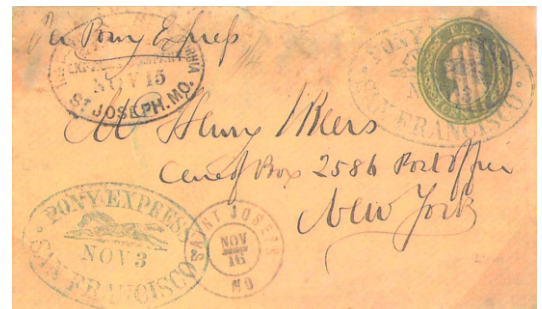 Per Pony Express
CALIFORNIA
NOV 15
ST JOSEPH. MO.
PONY
SAN FRANCISCO
TEN
CENTS
Henry
Care of Box 2586 Post Office
New York
PONY EXPRESS
NOV 3
SAN FRANCISCO
SAINT JOSEPH
NOV
16
MO